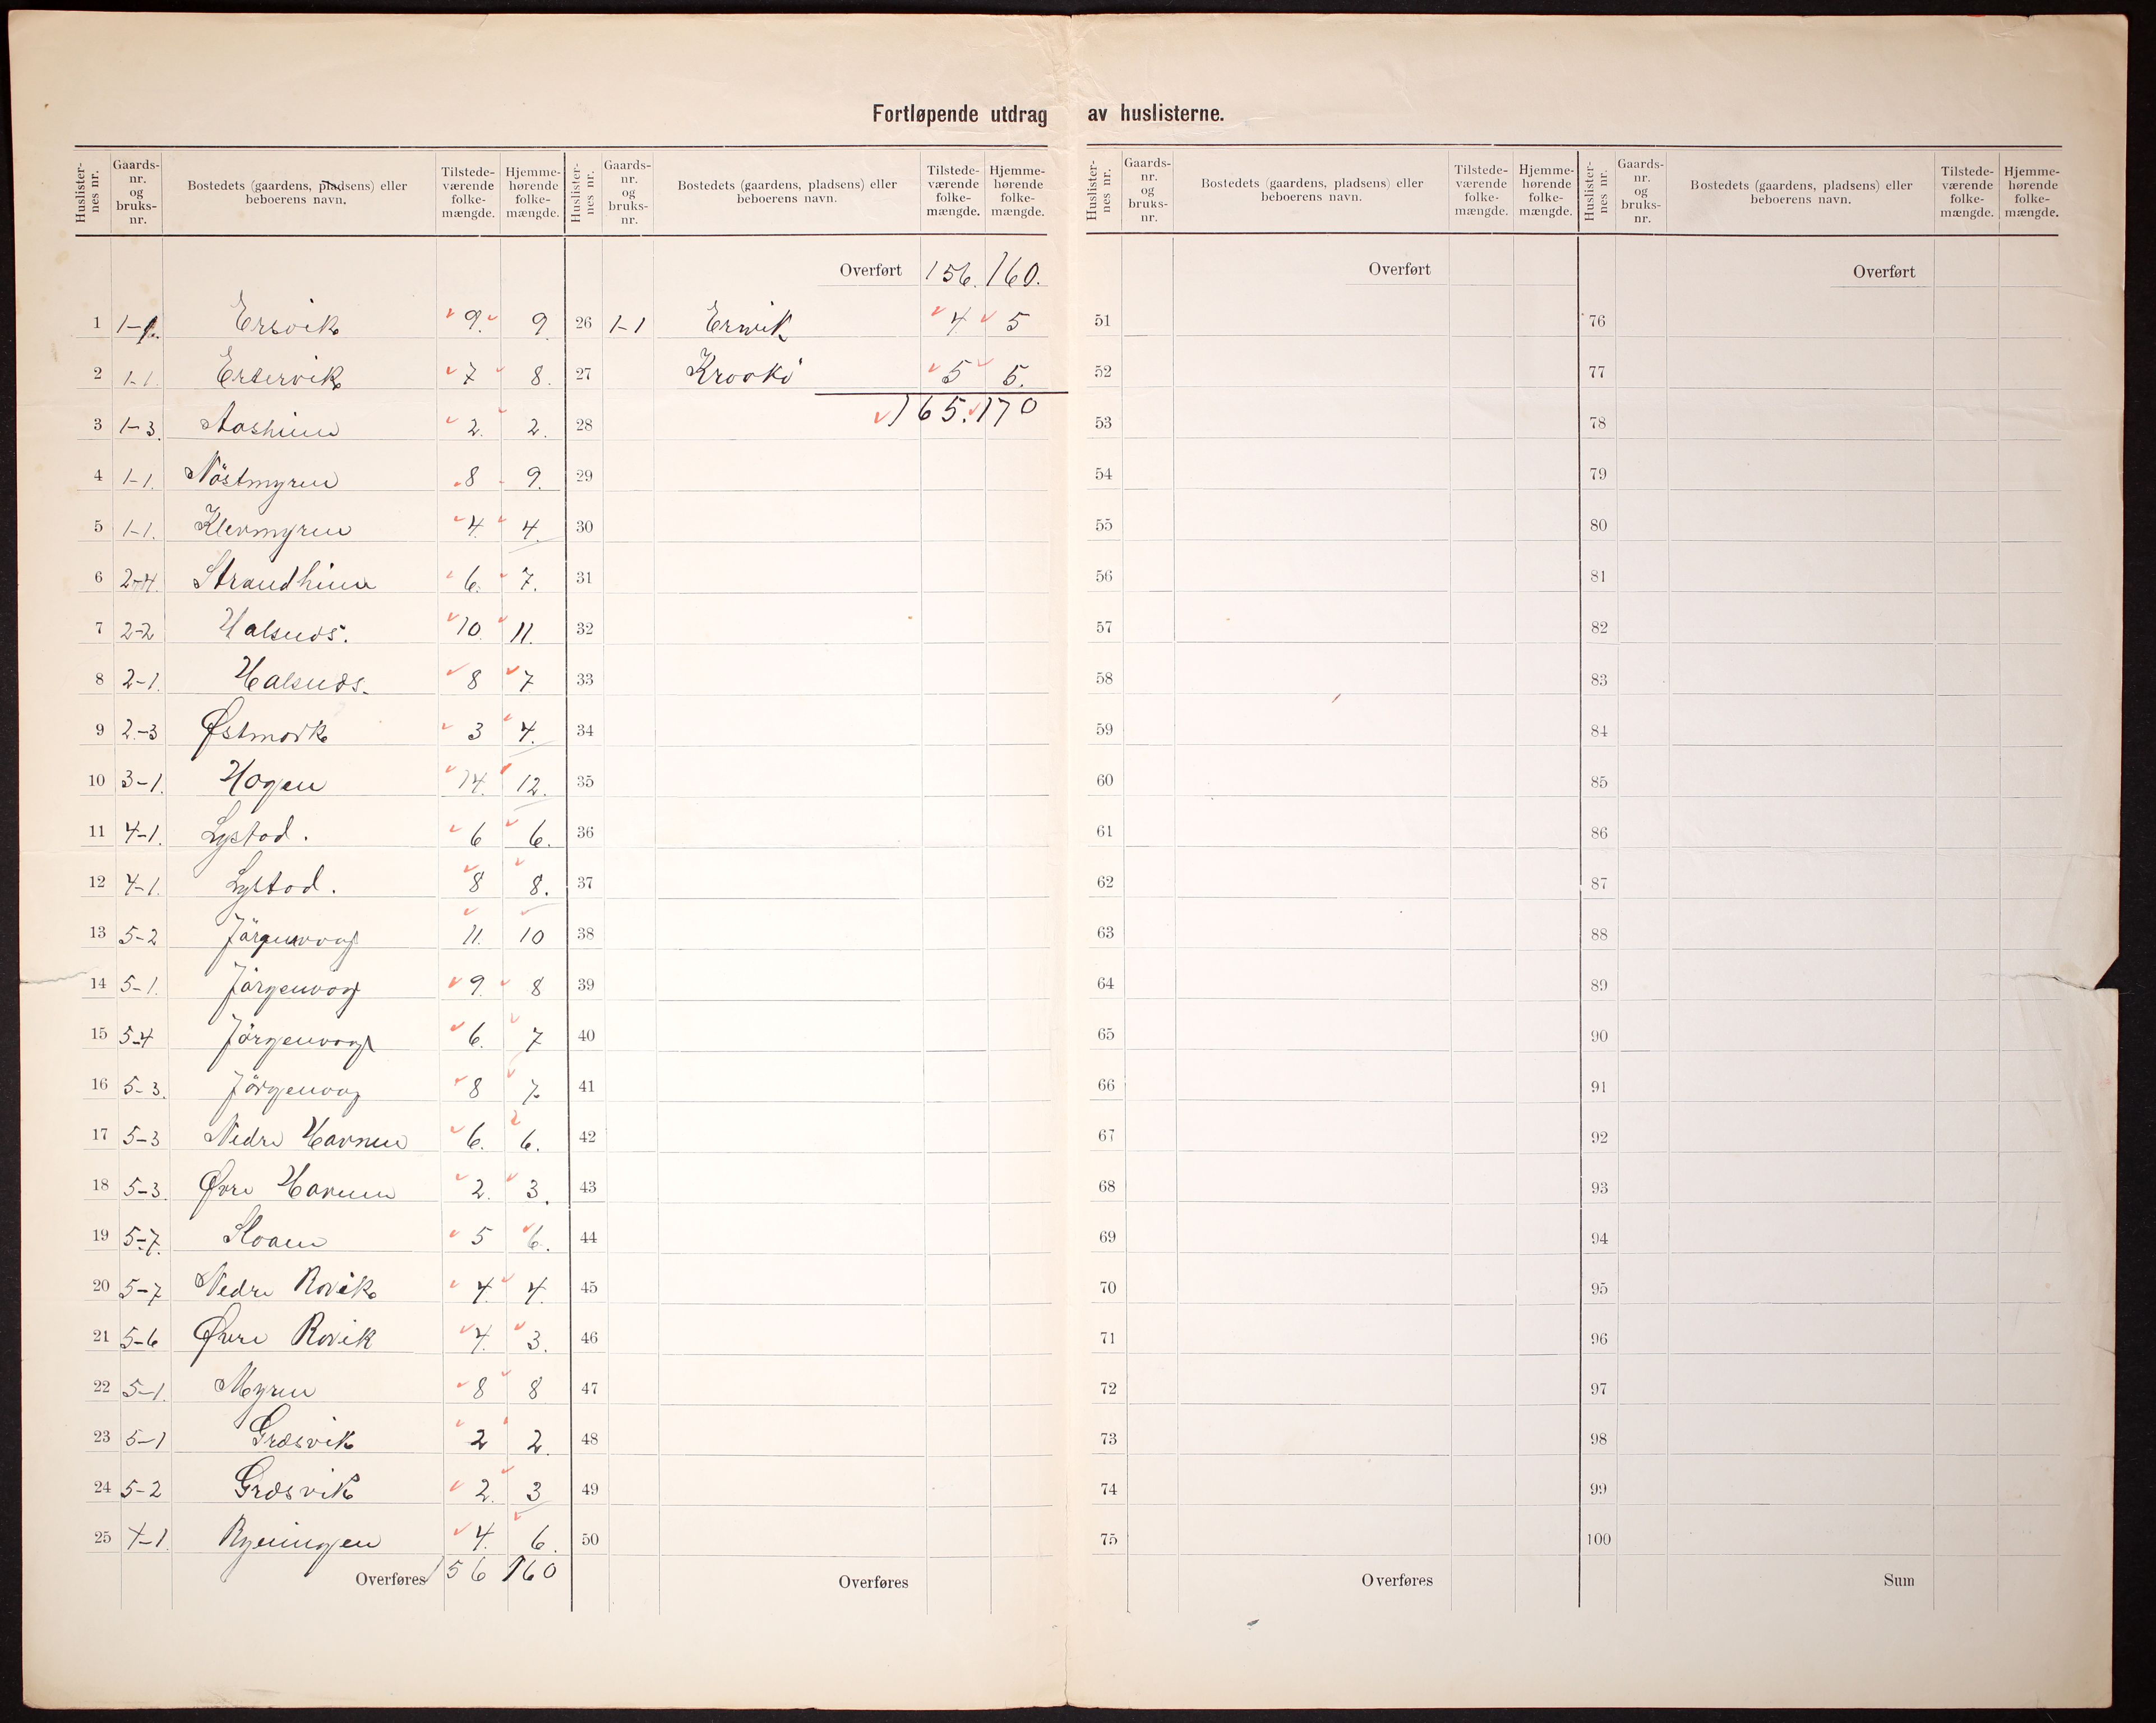 Fortløpende utdrag av huslisterne.
Huslisternes nr. Gaards-nr. og bruks-nr. Bostedets (gaardens, pladsens) eller beboerens navn. Tilstede-værende folke-mængde. Hjemme-hørende folke-mængde.
1 1-1. Ersvik 9. 9
2 1-1. Ertervik 7 8.
3 1-3. Aasheim 2. 2.
4 1-1. Nöstmyren 8 9.
5 1-1. Klevmyren 4. 4.
6 2-4. Strandheim 6. 7.
7 2-2 Halsnæs. 10. 11.
8 2-1. Halsnæs. 8 7
9 2-3 Østmork 3 4.
10 3-1. Hogen 14. 12.
11 4-1. Lystad. 6 6.
12 4-1. Lystad. 8 8.
13 5-2 Jörgenvaag 11. 10
14 5-1. Jörgenvaag 9. 8
15 5-4 Jörgenvaag 6. 7
16 5-3. Jörgenvaag 8 7
17 5-3 Nedre Havnen 6. 6.
18 5-3. Øvre Havnen 2. 3.
19 5-7. 5 6.
20 5-7 Nedre Rovik 4. 4.
21 5-6 Øvre Rovik 4. 3.
22 5-1. Myren 8 8
23 5-1 Græsvik 2 2.
24 5-2 Græsvik 2. 3
25 4. 6.
Overføres 156 160
Huslisternes nr. Gaards-nr. og bruks-nr. Bostedets (gaardens, pladsens) eller beboerens navn. Tilstede-værende folke-mængde. Hjemme-hørende folke-mængde.
Overført 156. 160.
26 1-1 Ersvik 4 5
27 5 5.
28 165. 170
29
30
31
32
33
34
35
36
37
38
39
40
41
42
43
44
45
46
47
48
49
50
Overføres
Huslisternes nr. Gaards-nr. og bruks-nr. Bostedets (gaardens, pladsens) eller beboerens navn. Tilstede-værende folke-mængde. Hjemme-hørende folke-mængde.
Overført
51
52
53
54
55
56
57
58
59
60
61
62
63
64
65
66
67
68
69
70
71
72
73
74
75
Overføres
Huslisternes nr. Gaards-nr. og bruks-nr. Bostedets (gaardens, pladsens) eller beboerens navn. Tilstede-værende folke-mængde. Hjemme-hørende folke-mængde.
Overført
76
77
78
79
80
81
82
83
84
85
86
87
88
89
90
91
92
93
94
95
96
97
98
99
100
Sum